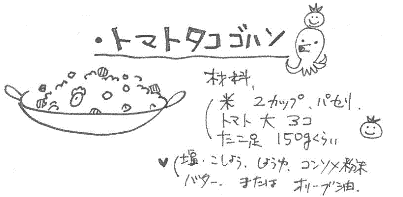 ・トマトタコゴハン
材料、
米 2カップ、パセリ、
トマト 大 3コ
たこ足 150gくらい
♥ 塩・こしょう、しょうゆ、コンソメ粉末
バター、または オリーブ油、